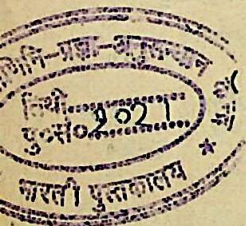 णिनि-प्रज्ञा-अनुसन्धान
तिथी...............
पु०सं०2021..........
भारती पुस्तकालय *